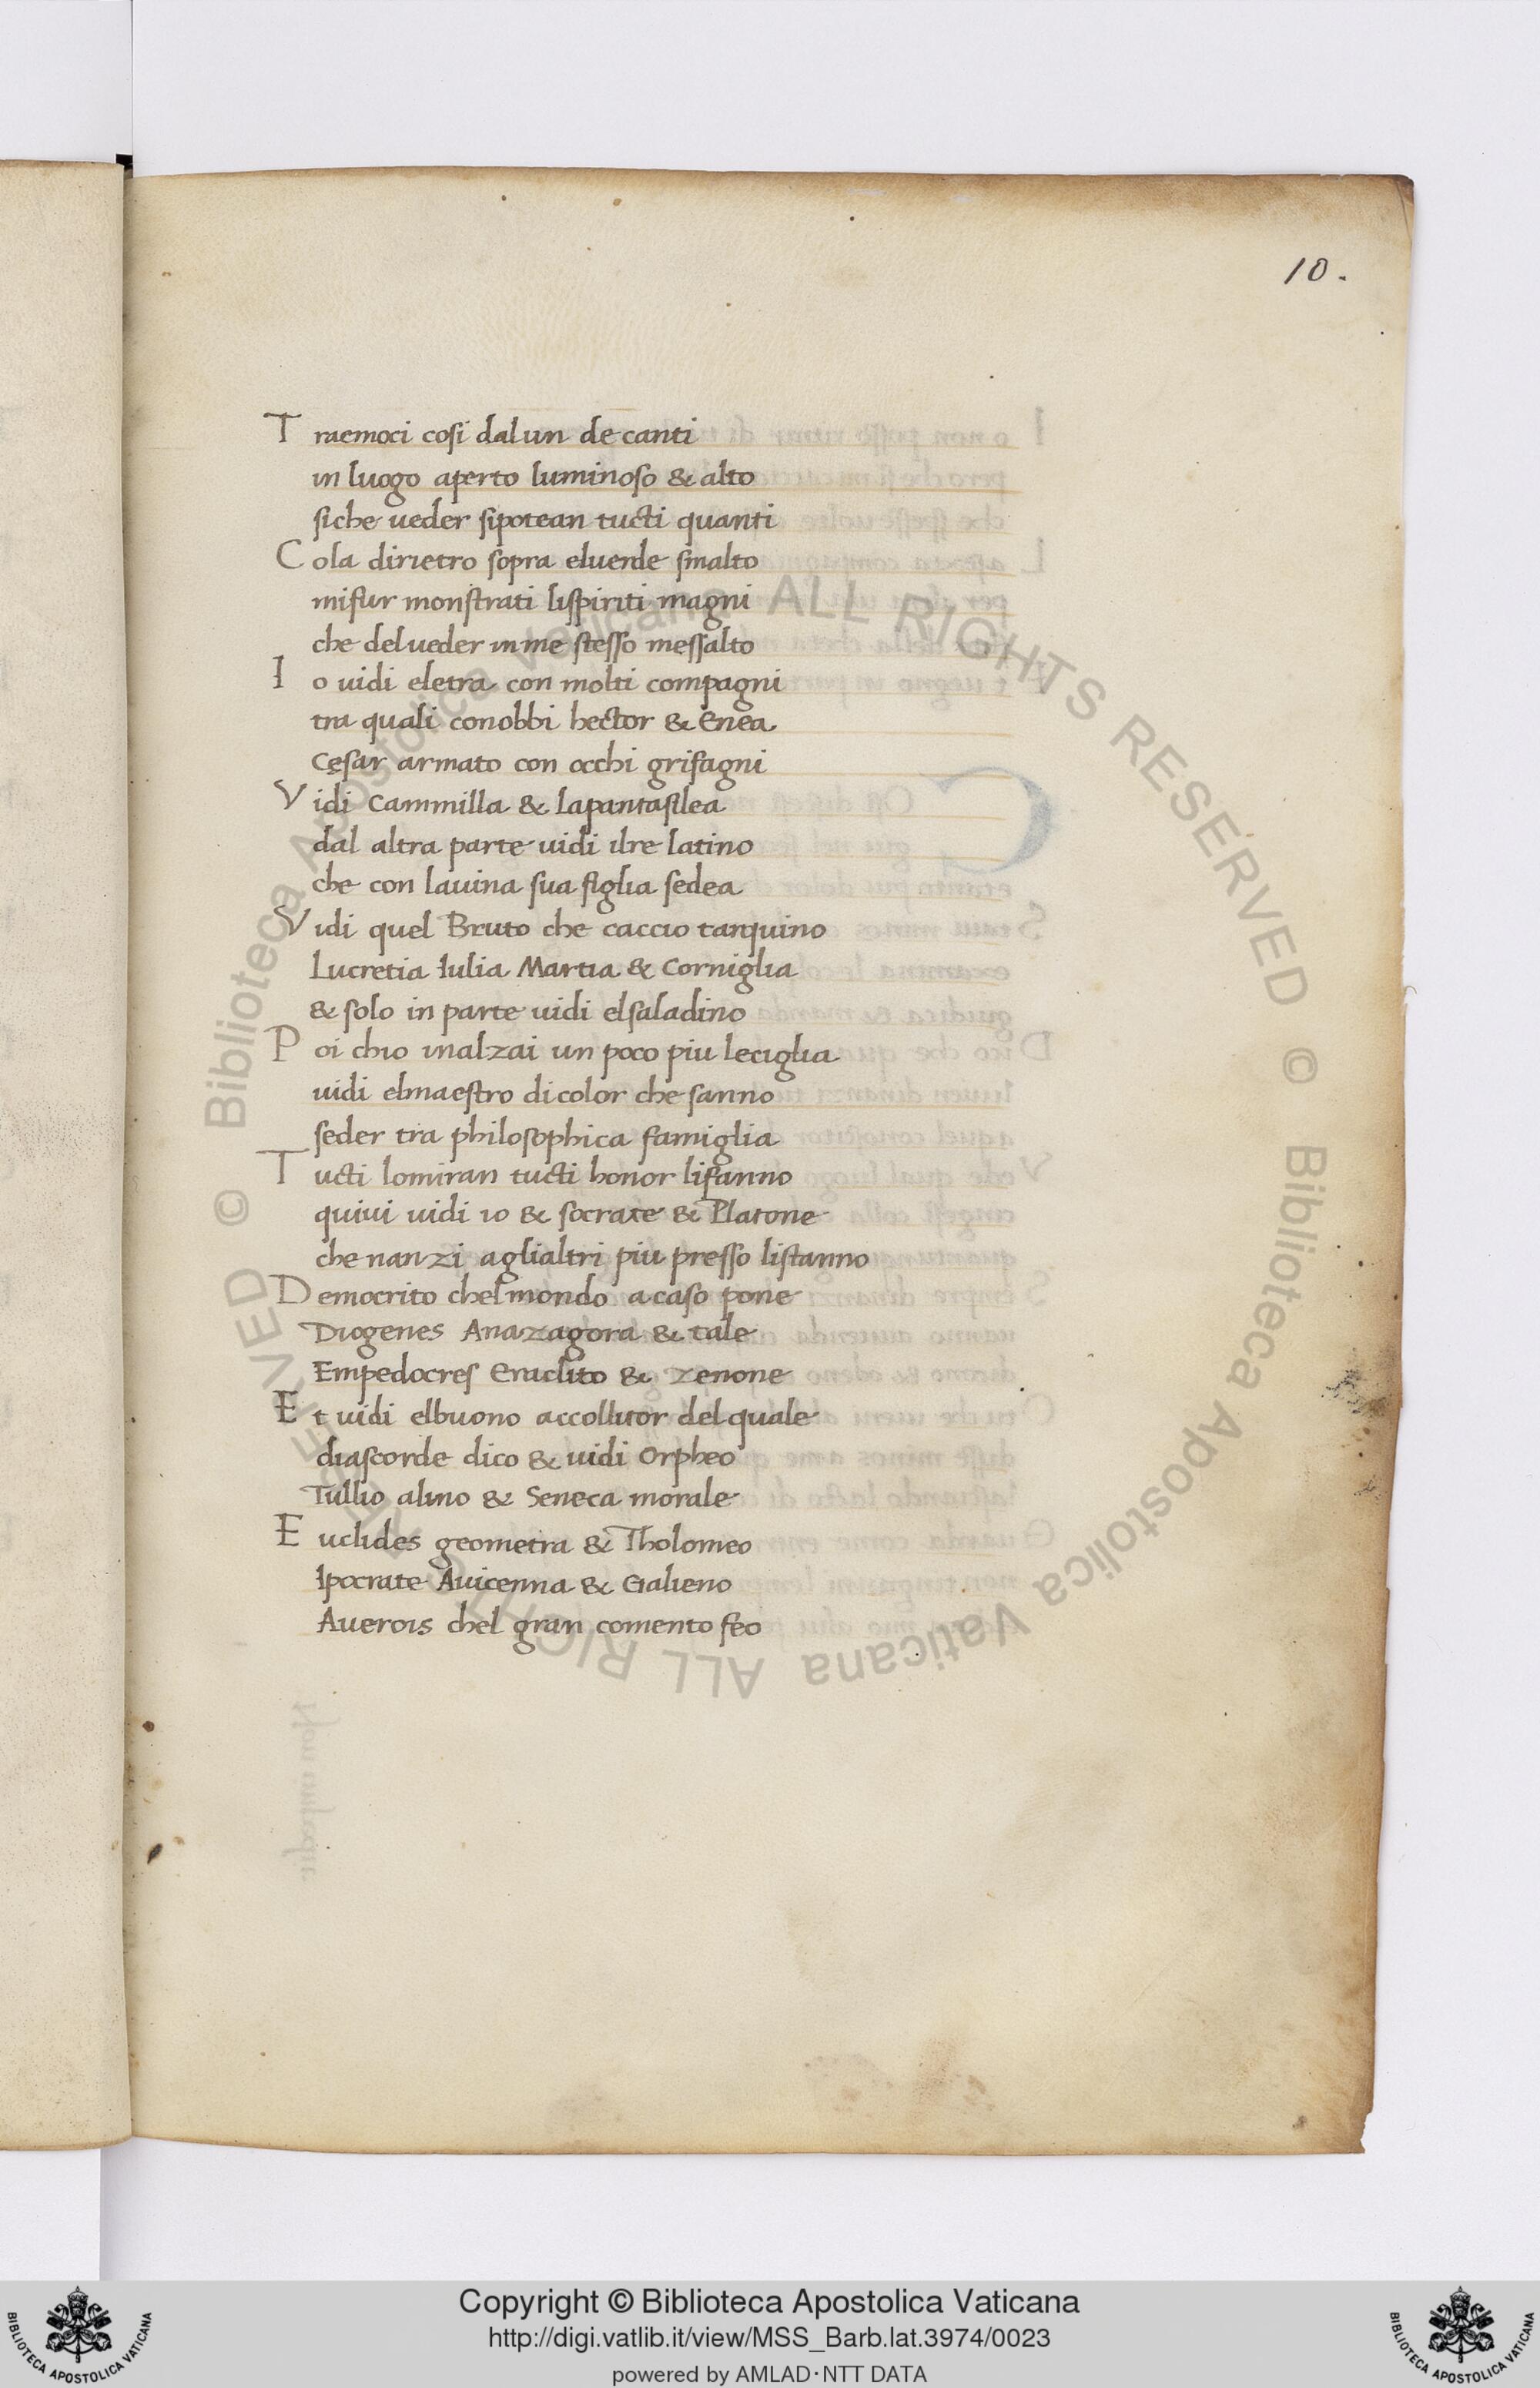 10.
Traemoci cosi dalun de canti
in luogo aperto luminoso & alto
siche ueder sipotean tucti quanti
Cola dirietro sopra eluerde smalto
mifur monstrati lispiriti magni
che delueder inme stesso messalto
Io uidi eletra con molti compagni
tra quali conobbi hector & Enea
Cęsar armato con occhi grifagni
Vidi Cammilla & lapantasilea
dal altra parte uidi ilre latino
che con lauina sua figlia sedea
Vidi quel Bruto che caccio tarquino
Lucretia Iulia Martia & Corniglia
& solo in parte uidi elsaladino
Poi chio inalzai un poco piu leciglia
uidi elmaestro dicolor che sanno
seder tra philosophica famiglia
Tucti lomiran tucti honor lifanno
quiui uidi io & socrate & Platone
che nanzi aglialtri piu presso listanno
Democrito chelmondo acaso pone
Diogenes Anazagora & tale
Empedocres Eraclito & Zenone
Et uidi elbuono accollitor delquale
diascorde dico & uidi Orpheo
Tullio alino & Seneca morale
Euclides geometra & Tholomeo
Ipocrate Auicenna & Galieno
Auerois chel gran comento feo
© Biblioteca Apostolica Vaticana ALL RIGHTS RESERVED © Biblioteca Apostolica Vaticana ALL RIGHTS RESERVED
BIBLIOTECA APOSTOLICA VATICANA
Copyright © Biblioteca Apostolica Vaticana
http://digi.vatlib.it/view/MSS_Barb.lat.3974/0023
powered by AMLAD·NTT DATA
BIBLIOTECA APOSTOLICA VATICANA